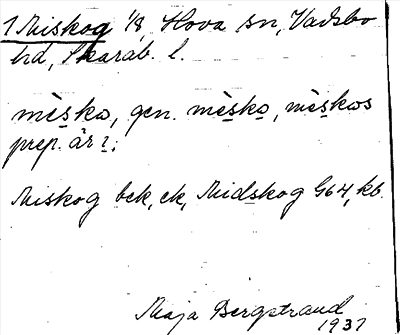 1 Miskog 1/8, Hova sn, Vadsbo
hd, Skarab. l.
mèsko, gen. mèsko, mèskos
prep. är i.
Miskog bek, ek, Midskog G64, kb.
Maja Bergstrand
1937